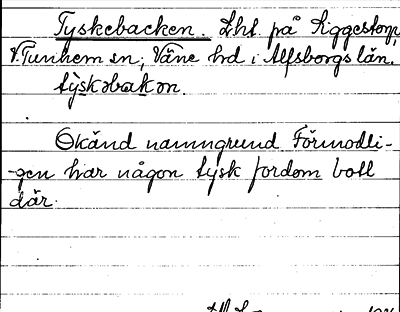 Tyskebacken. Lht. på Riggestorp,
V. Tunhem sn, Väne hd i Älfsborgs län.
týskəbakən.
Okänd namngrund. Förmodli-
-gen har någon tysk fordom bott
där.